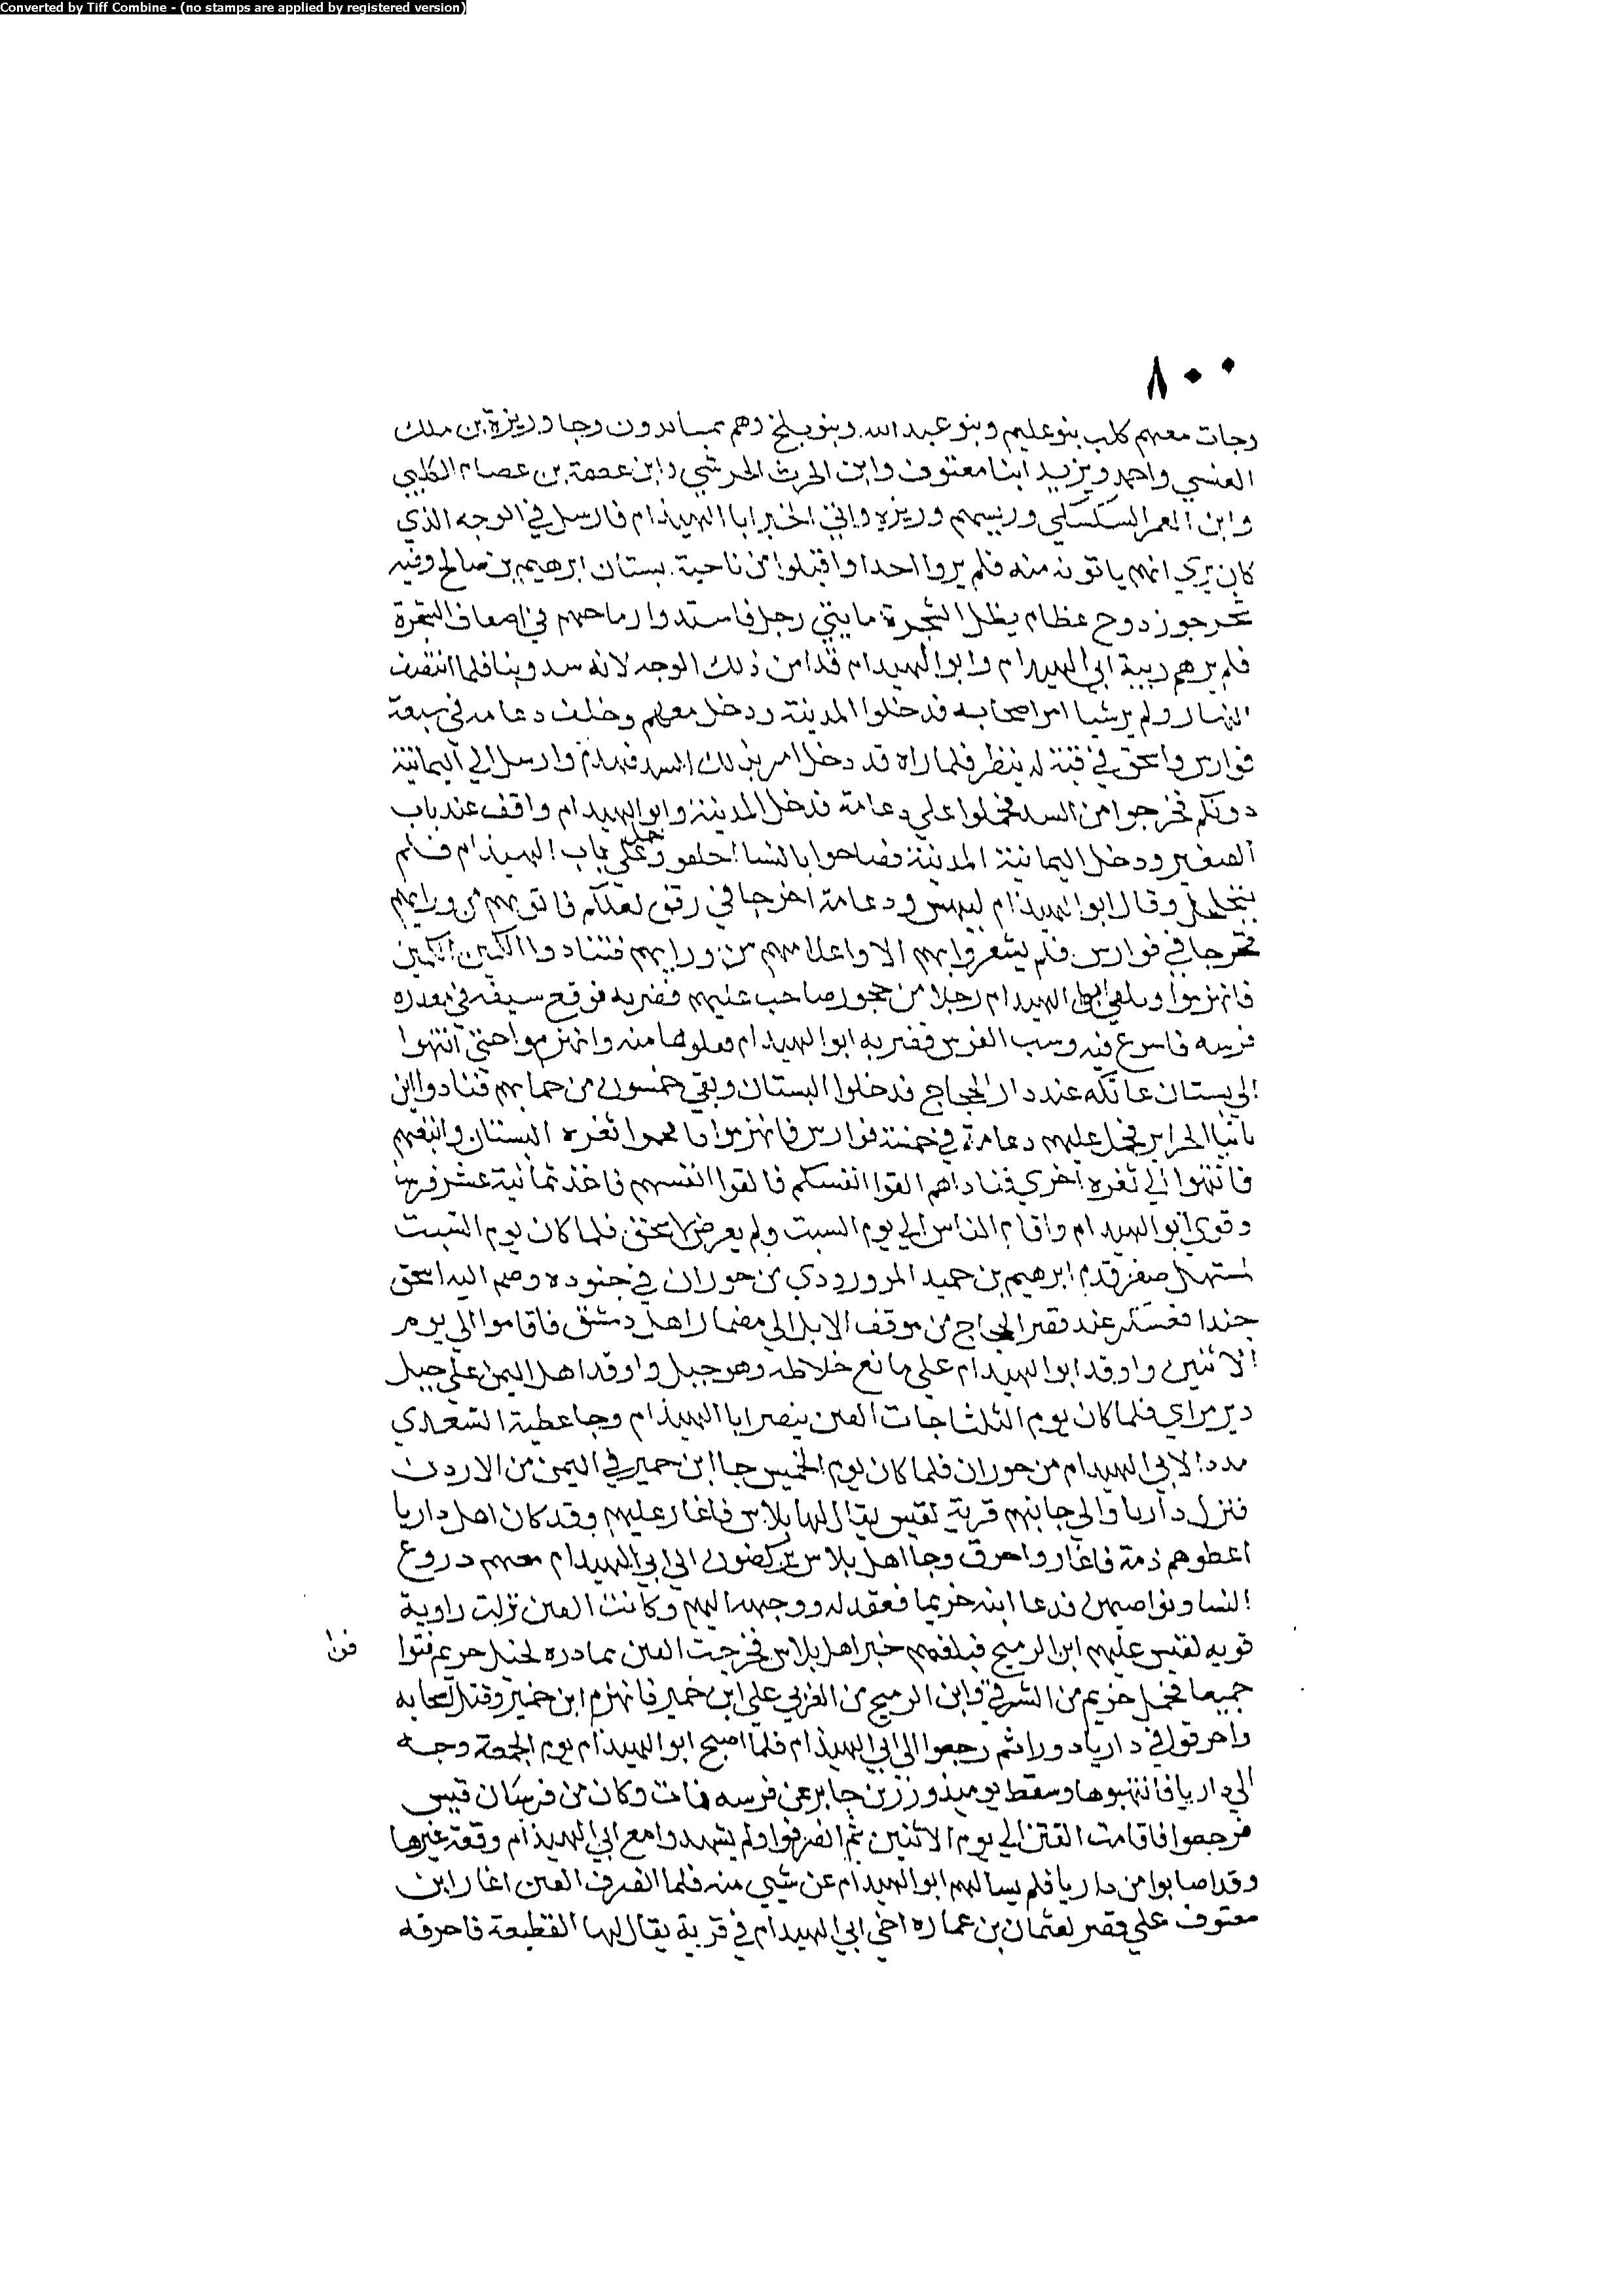 Converted by Tiff Combine - (no stamps are applied by registered version)
٨٠٠
وجات معهم كلب بنو عليم وبنو عبد الله وبنو بلخ وهم يساندون وجا وريزة بن ملك
العنسي واحمد ويزيد ابنا معتوف وابن الحرث الحرشي وابن عصمة بن عصام الكلبي
وابن المعمر السكسكي ورييسهم وريزه واتي الخبر ابا الهيذام فارسل في الوجه الذي
كان يري انهم ياتونه منه فلم يروا احدا واقبلوا من ناحية بستان ابرهيم بن صالح وفيه
شجر جوز دوح عظام يظل الشجرة مايتي رجل فاستدوا رماحهم في اضعاف الشجرة
فلم يرهم ربية ابي الهيدام وابو الهيدام قد امن ذلك الوجه لانه سد وبنا فلما انتصف
النهار ولم ير شيا امر اصحابه فدخلوا المدينة ودخل معهم وخلف دعامه في سبعة
فوارس واسحق في قبة له ينظر فلما راه قد دخل امر بذلك السد فهدم وارسل الي اليمانية
دونكم فخرجوا من السد فحملوا علي دعامة فدخل المدينة وابو الهيدام واقف عند باب
الصغير ودخل اليمانية المدينة فصاحوا بالنسا علي باب الهيذام فلم
وقال ابو الهيذام لبيهس ودعامة اخرجا في رفق لعلكم فاتوهم من ورايهم
فخرجا في فوارس فلم يشعروا بهم الا واعلامهم من ورايهم فتنادوا الكمين الكمين
فانهزموا ابو الهيدام رجلا من صاحب عليهم فضربه فوقع سيفه في
فرسه فاسرع فيه الفرس فضربه ابو الهيدام منه وانهزموا حتي انتهوا
الي بستان عاتكه عند دار الحجاج فدخلوا البستان وبقي خمسون من حماتهم فنادوا ابن
فحمل عليهم دعامة في خمسة فوارس فانهزموا ثغره البستان واتبعهم
فانتهوا الي ثغره اخري فناداهم القوا انفسكم فالقوا انفسهم فاخذ ثمانية عشر فرسا
وقوي ابو الهيدام واقام الناس الي يوم السبت ولم يعرض لاسحق فلما كان يوم السبت
مستهل صفر قدم ابرهيم بن حميد المرورودي من حوران في جنوده وضم اليه اسحق
جندا فعسكر عند قصر الحجاج من موقف الابل الي مضمار اهل دمشق فاقاموا الي يوم
الاثنين واوقد ابو الهيذام علي مانع خلاطه وهو جبل واوقد اهل اليمن علي جبل
دير مراي فلما كان يوم الثلثا جات القين ينصر ابا الهيذام وجا عطية السعدي
مددا لابي الهيدام من حوران فلما كان يوم الخميس جا ابن حمير في اليمن من الاردن
فنزل داريا والي جانبهم قرية لقيس يقال لها بلاس فاغار عليهم وقد كان اهل داريا
اعطوهم ذمة فاغار واحرق وجا اهل بلاس يركضون الي ابي الهيدام معهم دروع
النسا ونواصيهن فدعا ابنه خزيما فعقد له ووجهه اليهم وكانت القين نزلت راوية
قريه لقيس عليهم ابن الرميح فبلغهم خبر اهل بلاس فخرجت القين مبادره لخيل خزيم فتوا
فوا
جميعا فحمل خزيم من الشرقي وابن الرميح من الغربي علي ابن خمير فانهزم ابن خمير وقتل اصحابه
واحرقوا في داريا دورا ثم رجعوا الي ابي الهيذام فلما اصبح ابو الهيذام يوم الجمعة وجه
الي داريا فانتهبوها وسقط يوميذ وزر بن جابر عن فرسه فمات وكان من فرسان قيس
فرجعوا فاقامت القين الي يوم الاثنين ثم انصرفوا ولم يشهدوا مع ابي الهيذام وقعة غيرها
وقد اصابوا من داريا فلم يسالهم ابو الهيدام عن شي منه فلما انصرف القين اغار ابن
معتوف علي قصر لعثمان بن عماره اخي ابي الهيدام في قرية يقال لها القطيعة فاحرقه